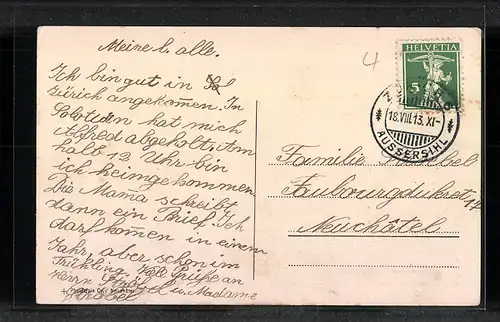 Meine l. alle.
Ich bin gut in
Zürich angekommen. In
Soloturn hat mich
Alfred abgeholt. Um
halb 12 Uhr bin
ich heimgekommen.
Die Mama schreibt
dann ein Brief. Ich
darf kommen in einem
Jahr, aber schon im
Frühling. Viele Grüsse an
Herrn u. Madame
4
HELVETIA
5
18.VIII.13.XI-
AUSSERSIHL
Familie
Faubourg du Cret 17
Neuchâtel